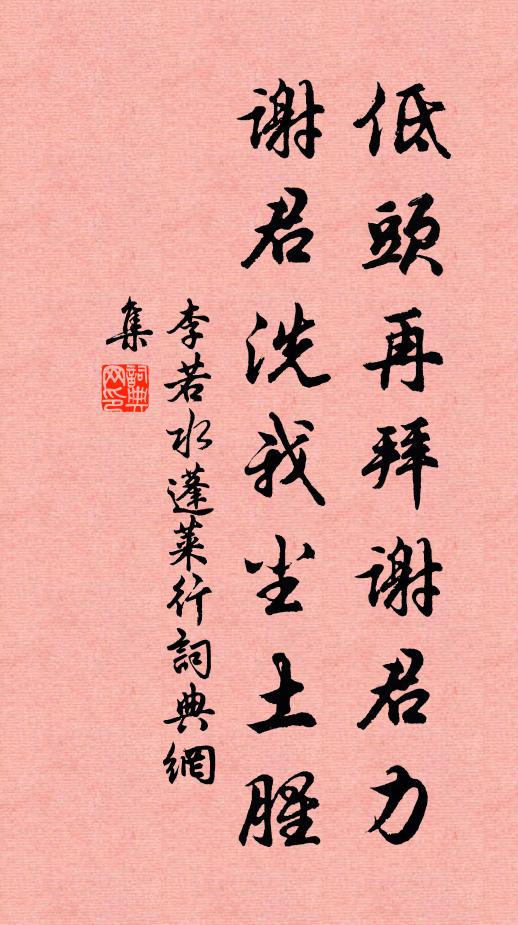 低頭再拜謝君力
謝君洗我尘土腥
李若水蓬莱行詞典網
集
詞典网印